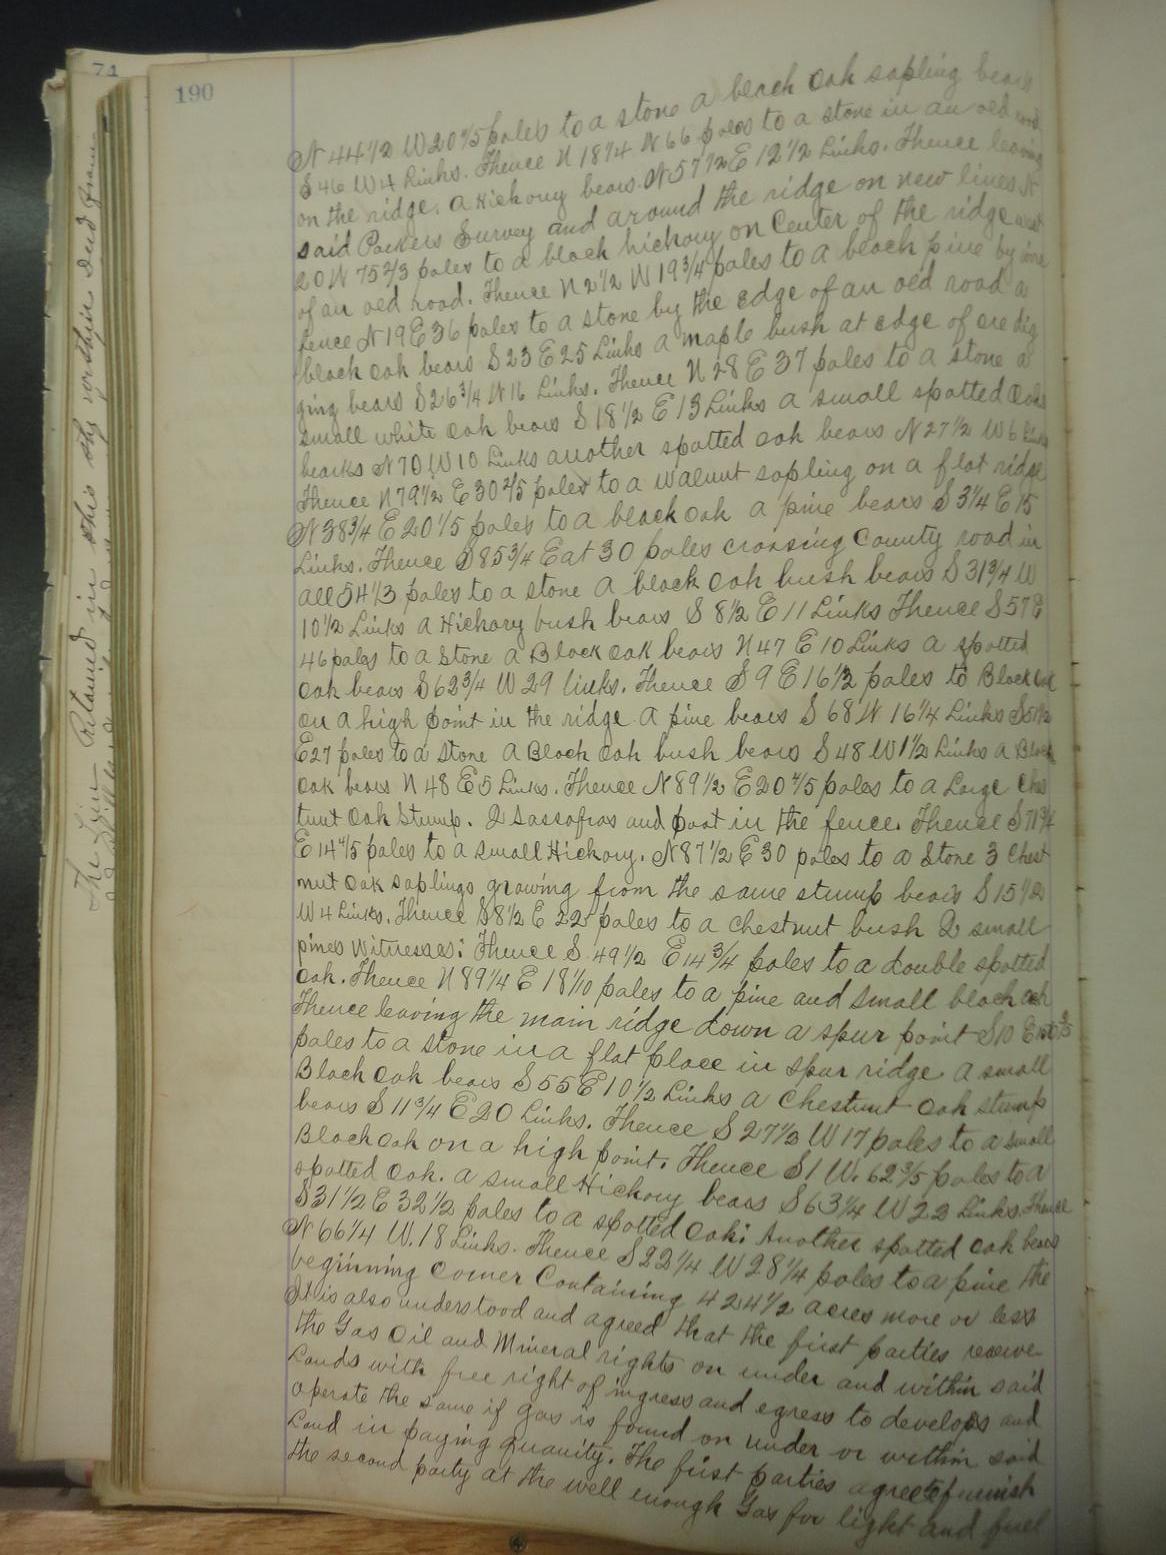 74
190
N 44 1/2 W 20 4/5 poles to a stone a black oak sapling bears
S 46 W 4 Links. Thence N 18 1/4 W 66 poles to a stone in an old road
on the ridge, a Hickory bears N 57 1/2 E 12 1/2 Links. Thence leaving
said Packers Survey and around the ridge on new lines N
20 W 75 2/3 poles to a black hickory on Center of the ridge west
of an old road. Thence N 2 1/2 W 19 3/4 poles to a black pine by wire
fence N 19 E 36 poles to a stone by the edge of an old road a
black oak bears S 23 E 25 Links a maple bush at edge of ore dig
ging bears S 26 3/4 W 16 Links. Thence N 28 E 37 poles to a stone a
small white oak bears S 18 1/2 E 13 Links a small spotted Oak
bearks N 70 W 10 Links another spotted oak bears N 27 1/2 W 6 Links
Thence N 79 1/2 E 30 2/5 poles to a Walnut sapling on a flat ridge
N 38 3/4 E 20 1/5 poles to a black oak a pine bears S 3 1/4 E 15
Links. Thence S 85 3/4 E at 30 poles crossing County road in
all 54 1/3 poles to a stone a black oak bush bears S 31 3/4 W
10 1/2 Links a Hickory bush bears S 8 1/2 E 11 Links Thence S 57 E
46 poles to a Stone a Black oak bears N 47 E 10 Links a spotted
oak bears S 62 3/4 W 29 links. Thence S 9 E 16 1/2 poles to Black Oak
on a high point in the ridge a pine bears S 68 W 16 1/4 Links S 51 1/2
E 27 poles to a Stone a Black Oak bush bears S 48 W 1 1/2 Links a Black
oak bears N 48 E 5 Links. Thence N 89 1/2 E 20 4/5 poles to a Large Ches
tnut Oak Stump. 2 Sassafras and post in the fence. Thence S 71 3/4
E 14 4/5 poles to a small Hickory. N 87 1/2 E 30 poles to a Stone 3 Chest
nut Oak saplings growing from the same stump bears S 15 1/2
W 4 Links. Thence S 8 1/2 E 22 poles to a chestnut bush 2 small
pines Witnesses: Thence S 49 1/2 E 14 3/4 poles to a double spotted
oak. Thence N 89 1/4 E 18 1/10 poles to a pine and small black oak
Thence leaving the main ridge down a spur point S 10 E
poles to a stone in a flat place in spur ridge a small
Black Oak bears S 55 E 10 1/2 Links a Chestnut Oak stump
bears S 11 3/4 E 20 Links. Thence S 27 1/3 W 17 poles to a small
Black Oak on a high point. Thence S 1 W. 62 3/5 poles to a
spotted Oak. a small Hickory bears S 63 1/4 W 22 Links. Thence
S 31 1/2 E 32 1/2 poles to a spotted Oak: Another spotted oak bears
N 66 1/4 W. 18 Links. Thence S 22 1/4 W 28 1/4 poles to a pine the
beginning Corner Containing 424 1/2 acres more or less
It is also understood and agreed that the first parties reserve
the Gas Oil and Mineral rights on under and within said
Lands with free right of ingress and egress to develops and
operate the same if gas is found on under or within said
Land in paying quanity. The first parties agree to furnish
the second party at the well enough Gas for light and fuel
The Lien Retained in this